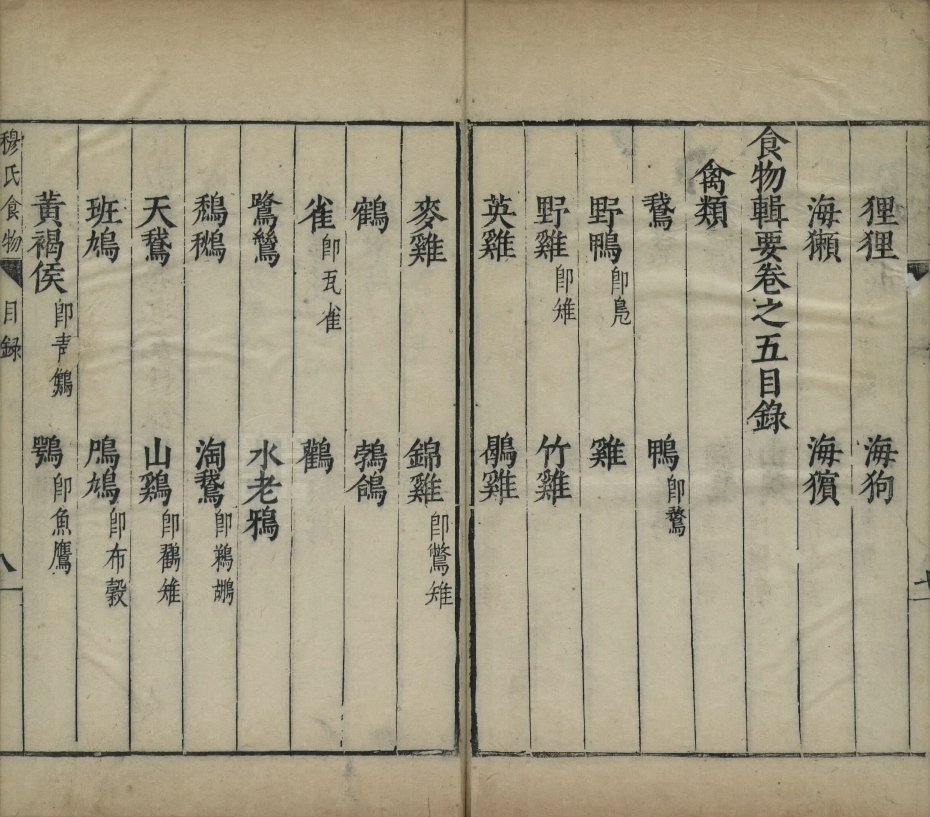 狸狸　海狗
海獺　海獱
食物輯要卷之五目錄
禽類
鵞　鴨卽鶩
野鴨卽鳧　雞
野雞卽雉　竹雞
英雞　鶡雞
麥雞　錦雞卽鷩雉
鶴　鵓鴿
雀卽瓦雀　鸛
鷺鷥　水老鴉
淘鵞卽鵜鶘
天鵞　山鷄卽鸐雉
班鳩　鳲鳩卽布穀
黃褐侯卽青鶵　鶚卽魚鷹
穆氏食物　目録　八